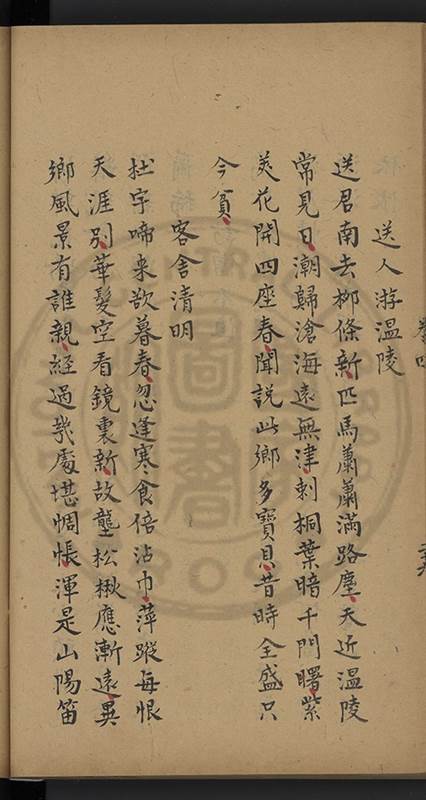 送人游温陵
送君南去柳條新匹馬蕭蕭滿路塵天近温陵
常見日潮歸滄海遠無津刺桐葉暗千門曙紫
荚花開四座春聞説此鄉多寶貝昔時全盛只
今貧
客舍清明
杜宇啼来欲暮春忽逢寒食倍沾巾萍蹤每恨
天涯別華髮空看鏡裏新故壟松楸應漸遠異
鄉風景有誰親經過幾處堪惆悵渾是山陽笛